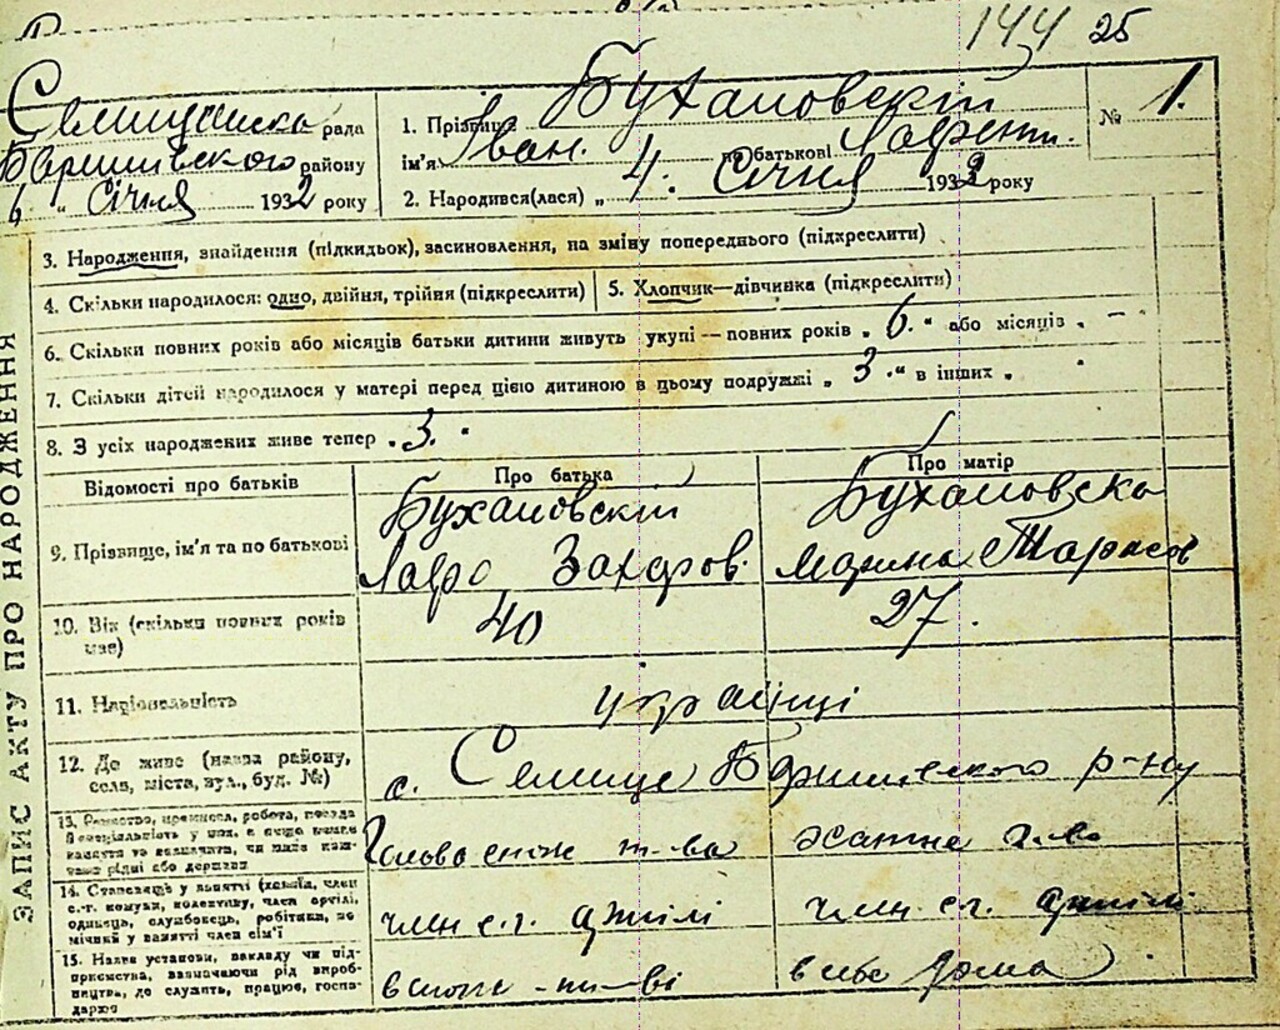 144 25
Селищанська рада
Баришивського району
6 " Січня 1932 року
1. Прізвище Бухановскій
ім'я Іван. по батькові Лаврент.
2. Народився(лася) „ 4. Січня 1932 року
№ 1.
ЗАПИС АКТУ ПРО НАРОДЖЕННЯ
3. Народження, знайдення (підкидьок), засиновлення, на зміну попереднього (підкреслити)
4. Скільки народилося: одно, двійня, трійня (підкреслити)
5. Хлопчик—дівчинка (підкреслити)
6. Скільки повних років або місяців батьки дитини живуть укупі — повних років „ 6. “ або місяців „ —
7. Скільки дітей народилося у матері перед цією дитиною в цьому подружжі „ 3 . “ в інших „
8. З усіх народжених живе тепер „ 3. "
Відомості про батьків
Про батька
Про матір
9. Прізвище, ім'я та по батькові
Бухановскій
Лавро Захаров.
Бухановска
Марина Тарасов
10. Вік (скільки повних років має)
40
27.
11. Національність
українці
12. Де живе (назва району,
села, міста, вул., буд. №)
с. Селище Баришивського р-ну
13. Ремество, промисел, робота, посада
Голова спож т-ва
хатне г-во
14. Становище у занятті (хазяїн, член
с.-г. комуни, колективу, член артілі,
одинець, службовець, робітник, по-
мічний у занятті член сім'ї
член с.г. артілі
член. с.г. артілі
15. Назва установи, закладу чи під-
приємства, зазначаючи рід вироб-
ництва, де служить, працює, госпо-
дарює
в спож - т-ві
в себе дома